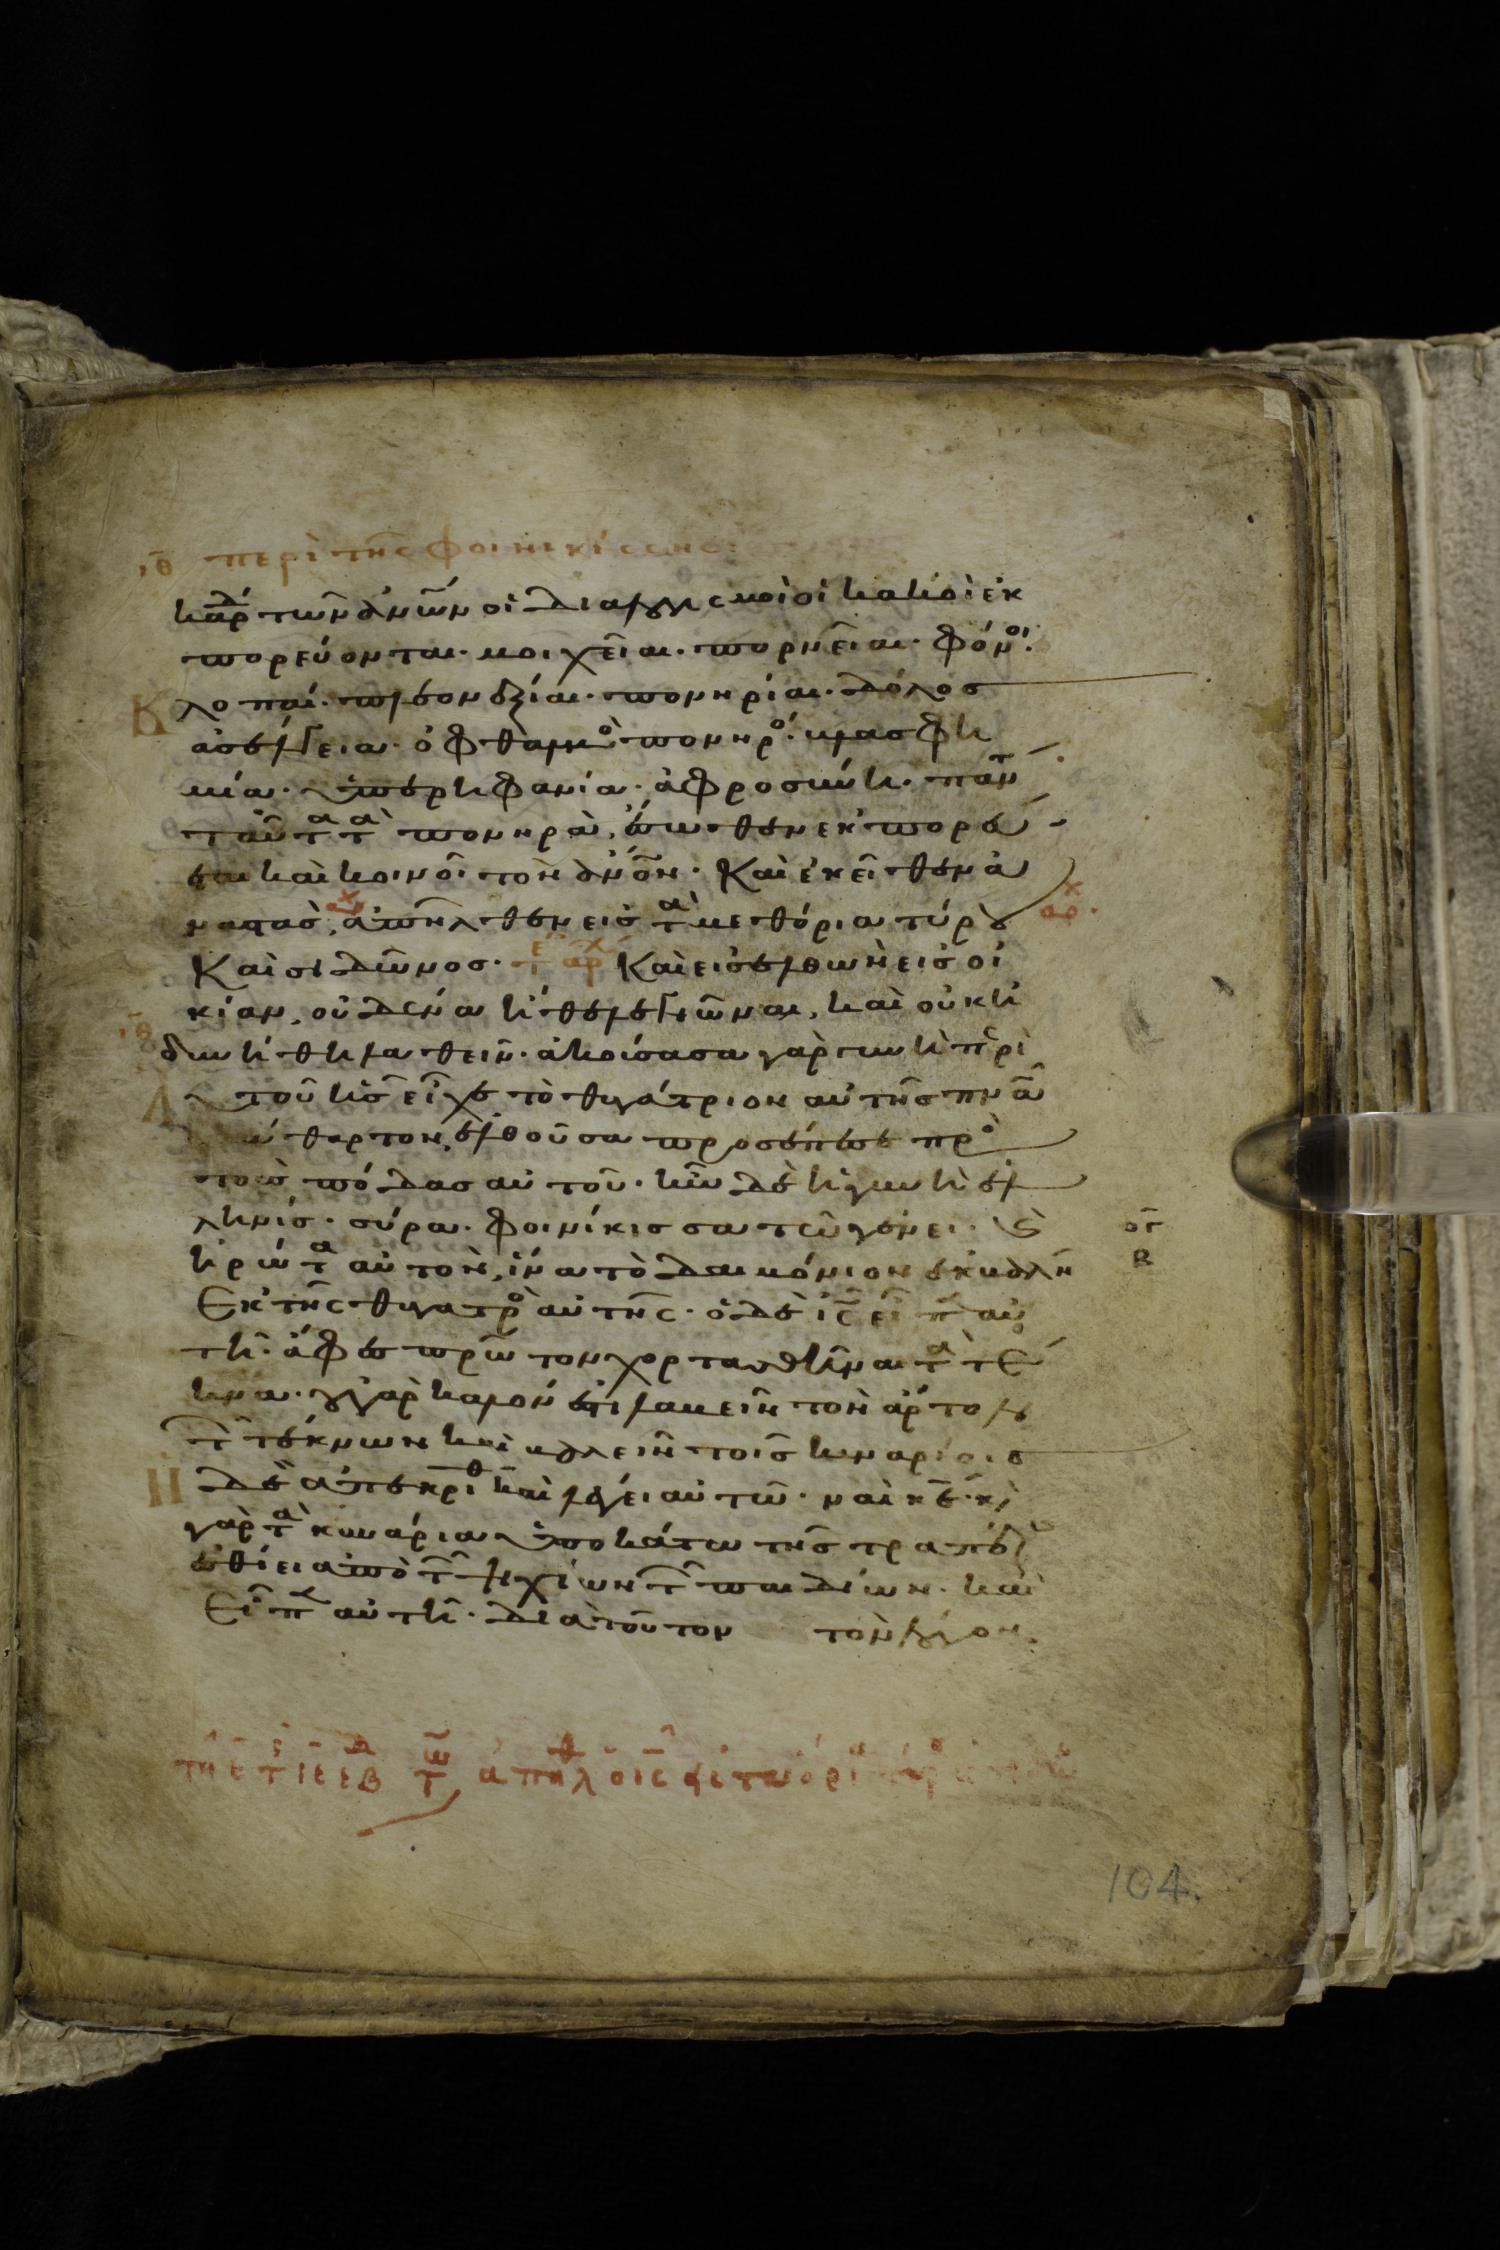 ιθ περὶ τῆς φοινικίσσης:
καρδ τῶν ἀνῶν οἱ διαλογισμοὶ οἱ κακοὶ ἐκ
πορεύονται· μοιχεῖαι· πορνεῖαι· φόνοι·
κλοπαί· πλεονεξίαι· πονηρίαι· δόλος
ἀσέλγεια· ὀφθαλμὸ πονηρό· βλασφη
μία· ὑπερηφανία· ἀφροσύνη· πάντ
ταῦτα τὰ πονηρὰ, ἔσωθεν ἐκπορεύ
εται καὶ κοινοῖ τὸν ἀνον· Καὶ ἐκεῖθεν ἀ
ναστὰσ, ἀπῆλθεν εἰσ τὰ μεθόρια τύρου
αρχ
Καὶ σιδῶνοσ· τε αρχ Καὶ εἰσελθὼν εἰσ οἰ
κίαν, οὐδένα ἤθελε γνῶναι, καὶ οὐκ ἠ
ιθ
δυνήθη λαθεῖν· ἀκούσασα γὰρ γυνὴ περὶ
αὐτοῦ ἧσ εἶχε τὸ θυγάτριον αὐτῆσ πνα
ἀκάθαρτον, ἐλθοῦσα προσέπεσε πρὸ
τοὺσ πόδασ αὐτοῦ· ἦν δὲ ἡ γυνὴ ἑλ
ληνίσ· σύρα· φοινίκισσα τῶ γένει· καὶ
ἠρώτα αὐτὸν, ἵνα τὸ δαιμόνιον ἐκβάλη
ἐκ τῆς θυγατρὸ αὐτῆς· ὁ δὲ ις εἶπ αὐ
τῆ· ἄφεσ πρῶτον χορτασθῆναι τὰ τέ
κνα· οὐ γὰρ καλόν ἐστι λαβεῖν τὸν ἄρτον
τ τέκνων καὶ βαλεῖν τοῖσ κυναρίοις
Η δὲ ἀπεκρίθ καὶ λέγει αὐτῶ· ναὶ κε· καὶ
γὰρ τὰ κυνάρια ὑποκάτω τῆσ τραπέζ
ἐσθίει ἀπὸ τ ψιχίων τ παιδίων· καὶ
εἶπ αὐτῆ· διὰ τοῦτον τὸν λόγον,
104.